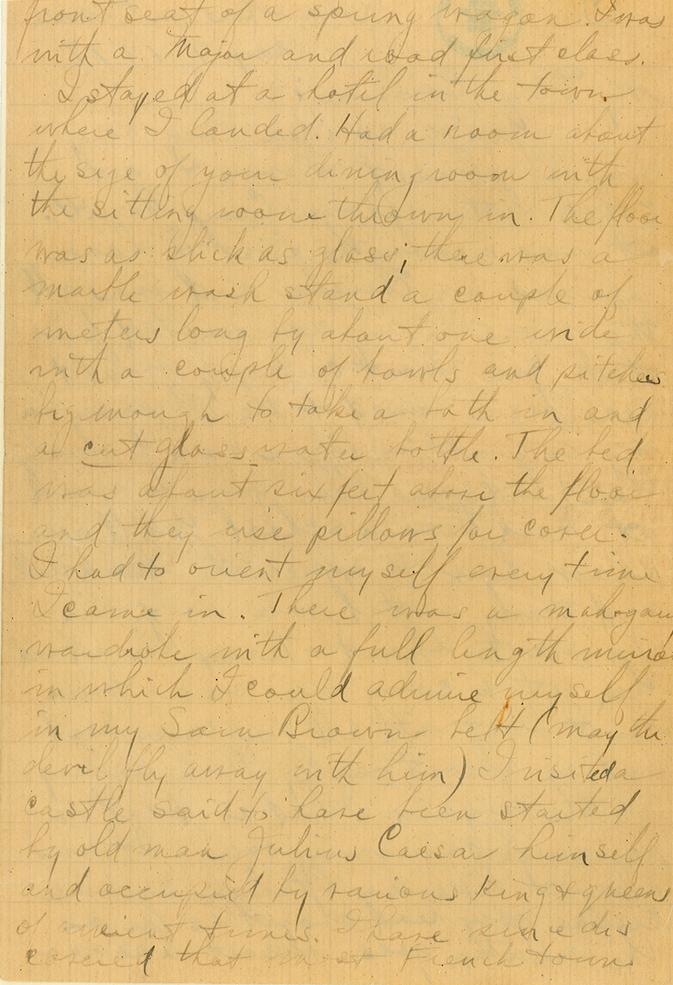 front seat of a spring wagon. I was
with a Major and road first class.
I stayed at a hotel in the town
where I landed. Had a room about
the size of your dining room with
the sitting room thrown in. The floor
was as slick as glass, there was a
marble wash stand a couple of
meters long by about one wide
with a couple of bowls and pitchers
big enough to take a bath in and
a cut glass water bottle. The bed
was about six feet above the floor
and they use pillows for cover.
I had to orient myself every time
I came in. There was a mahogany
wardrobe with a full length mirror
in which I could admire myself
in my Sam Brown belt (may the
devil fly away with him) I visited a
castle said to have been started
by old man Julius Caesar himself
and occupied by various king & queens
of ancient times. I have since dis
covered that most French towns